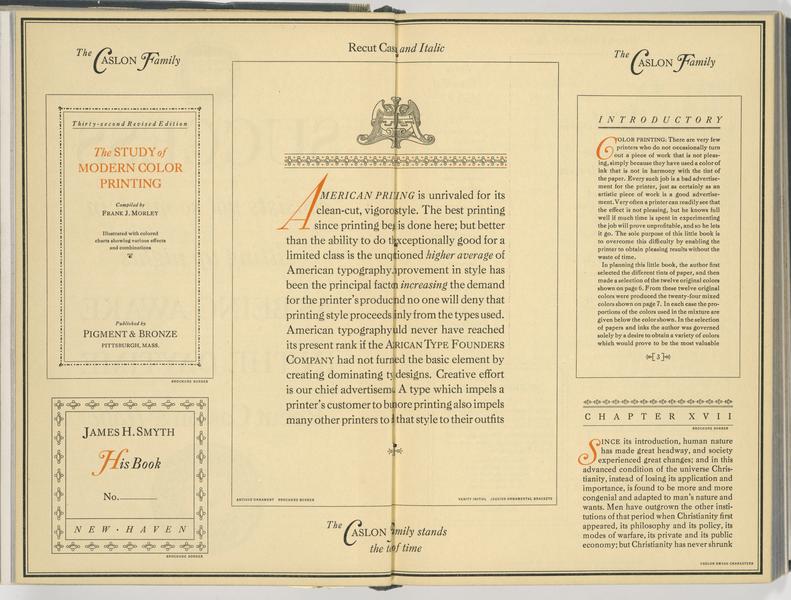 The CASLON Family
Thirty-second Revised Edition
The STUDY of
MODERN COLOR
PRINTING
Compiled by
FRANK J. MORLEY
Illustrated with colored
charts showing various effects
and combinations
Published by
PIGMENT & BRONZE
PITTSBURGH, MASS.
BROCHURE BORDER
JAMES H. SMYTH
His Book
No.
NEW · HAVEN
BROCHURE BORDER
Recut Cas and Italic
AMERICAN PRINTING is unrivaled for its
clean-cut, vigoro style. The best printing
since printing be is done here; but better
than the ability to do t xceptionally good for a
limited class is the unq tioned higher average of
American typography. provement in style has
been the principal facto increasing the demand
for the printer's produc nd no one will deny that
printing style proceeds inly from the types used.
American typography uld never have reached
its present rank if the A RICAN TYPE FOUNDERS
COMPANY had not furn d the basic element by
creating dominating ty designs. Creative effort
is our chief advertisem. A type which impels a
printer's customer to b more printing also impels
many other printers to that style to their outfits
ANTIQUE ORNAMENT BROCHURE BORDER
VANITY INITIAL JENSON ORNAMENTAL BRACKETS
The CASLON Family stands
the t of time
The CASLON Family
INTRODUCTORY
COLOR PRINTING: There are very few
printers who do not occasionally turn
out a piece of work that is not pleas-
ing, simply because they have used a color of
ink that is not in harmony with the tint of
the paper. Every such job is a bad advertise-
ment for the printer, just as certainly as an
artistic piece of work is a good advertise-
ment. Very often a printer can readily see that
the effect is not pleasing, but he knows full
well if much time is spent in experimenting
the job will prove unprofitable, and so he lets
it go. The sole purpose of this little book is
to overcome this difficulty by enabling the
printer to obtain pleasing results without the
waste of time.
In planning this little book, the author first
selected the different tints of paper, and then
made a selection of the twelve original colors
shown on page 6. From these twelve original
colors were produced the twenty-four mixed
colors shown on page 7. In each case the pro-
portions of the colors used in the mixture are
given below the color shown. In the selection
of papers and inks the author was governed
solely by a desire to obtain a variety of colors
which would prove to be the most valuable
[3]
CHAPTER XVII
BROCHURE BORDER
SINCE its introduction, human nature
has made great headway, and society
experienced great changes; and in this
advanced condition of the universe Chris-
tianity, instead of losing its application and
importance, is found to be more and more
congenial and adapted to man's nature and
wants. Men have outgrown the other insti-
tutions of that period when Christianity first
appeared, its philosophy and its policy, its
modes of warfare, its private and its public
economy; but Christianity has never shrunk
CASLON SWASH CHARACTERS